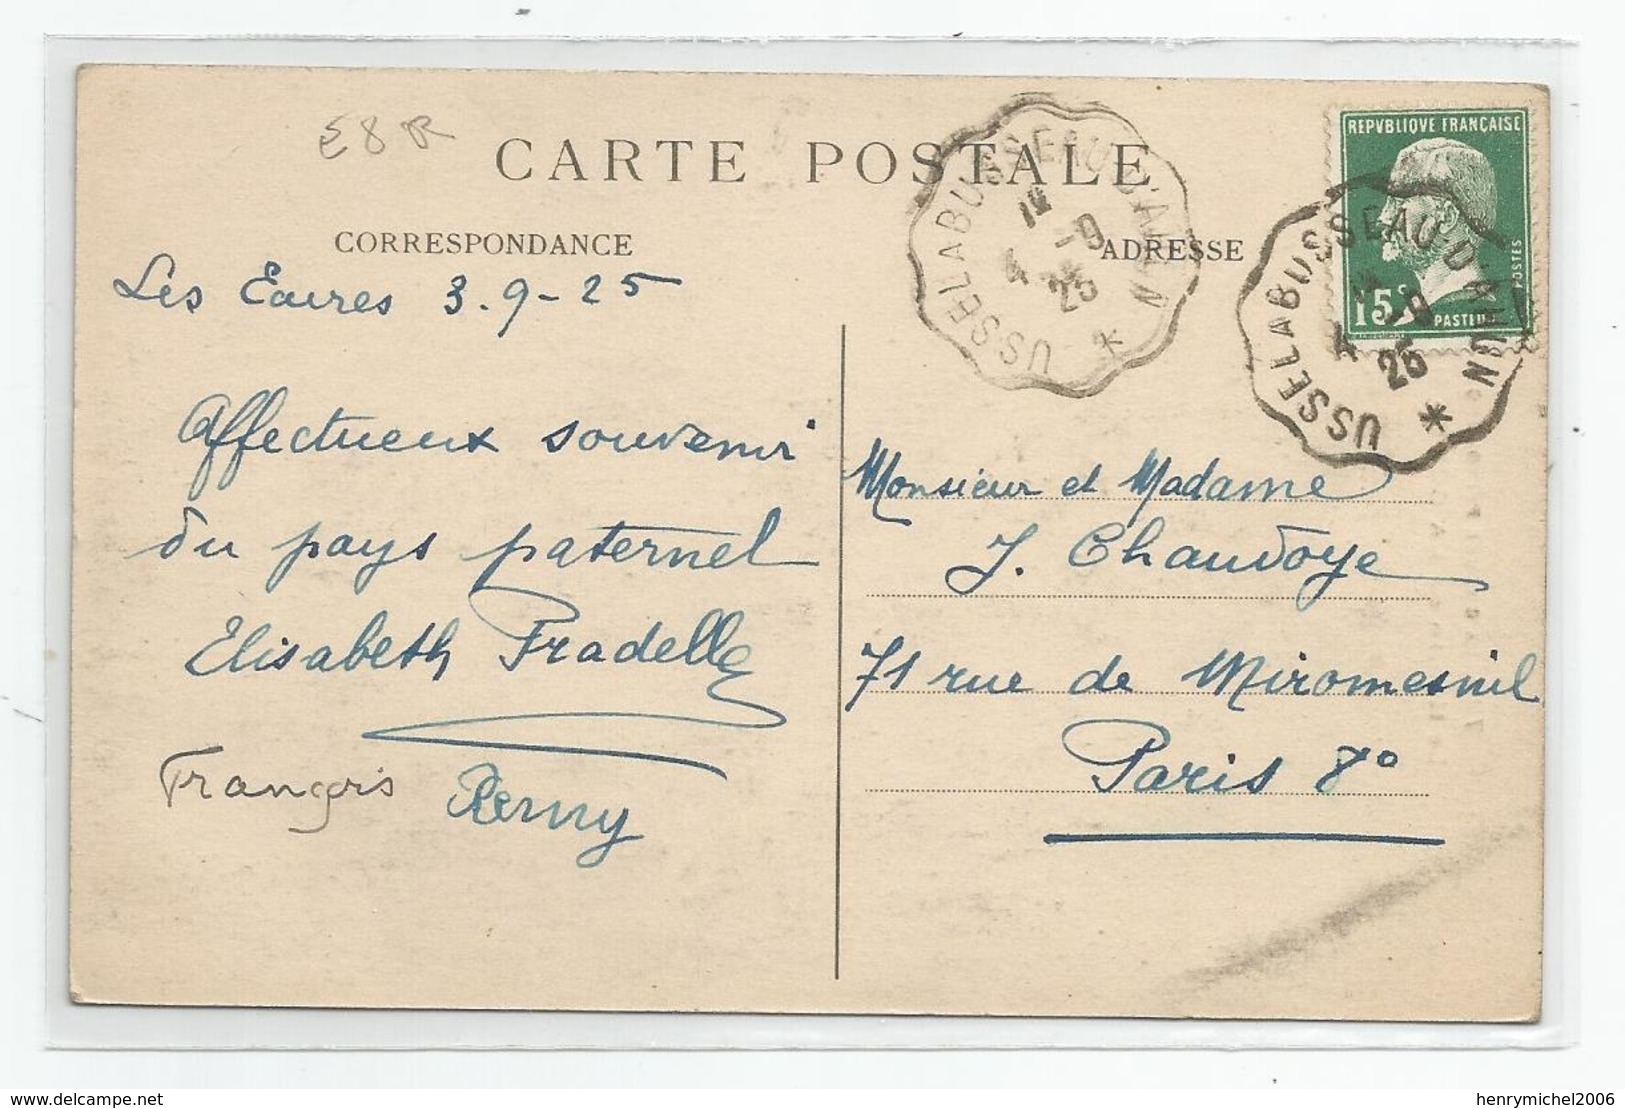 E8 R
CARTE POSTALE
CORRESPONDANCE
ADRESSE
REPVBLIQVE FRANÇAISE
15c
POSTES
PASTEUR
USSEL À BUSSEAU-D'AHUN
4 -9
25
USSEL À BUSSEAU-D'AHUN
4 -9
25
Les 3.9-25
Affectueux souvenir
du pays paternel
Elisabeth Pradelle
François Remy
Monsieur et Madame
J. Chaudoye
71 rue de Miromesnil
Paris 8e
delcampe.net
henrymichel2006